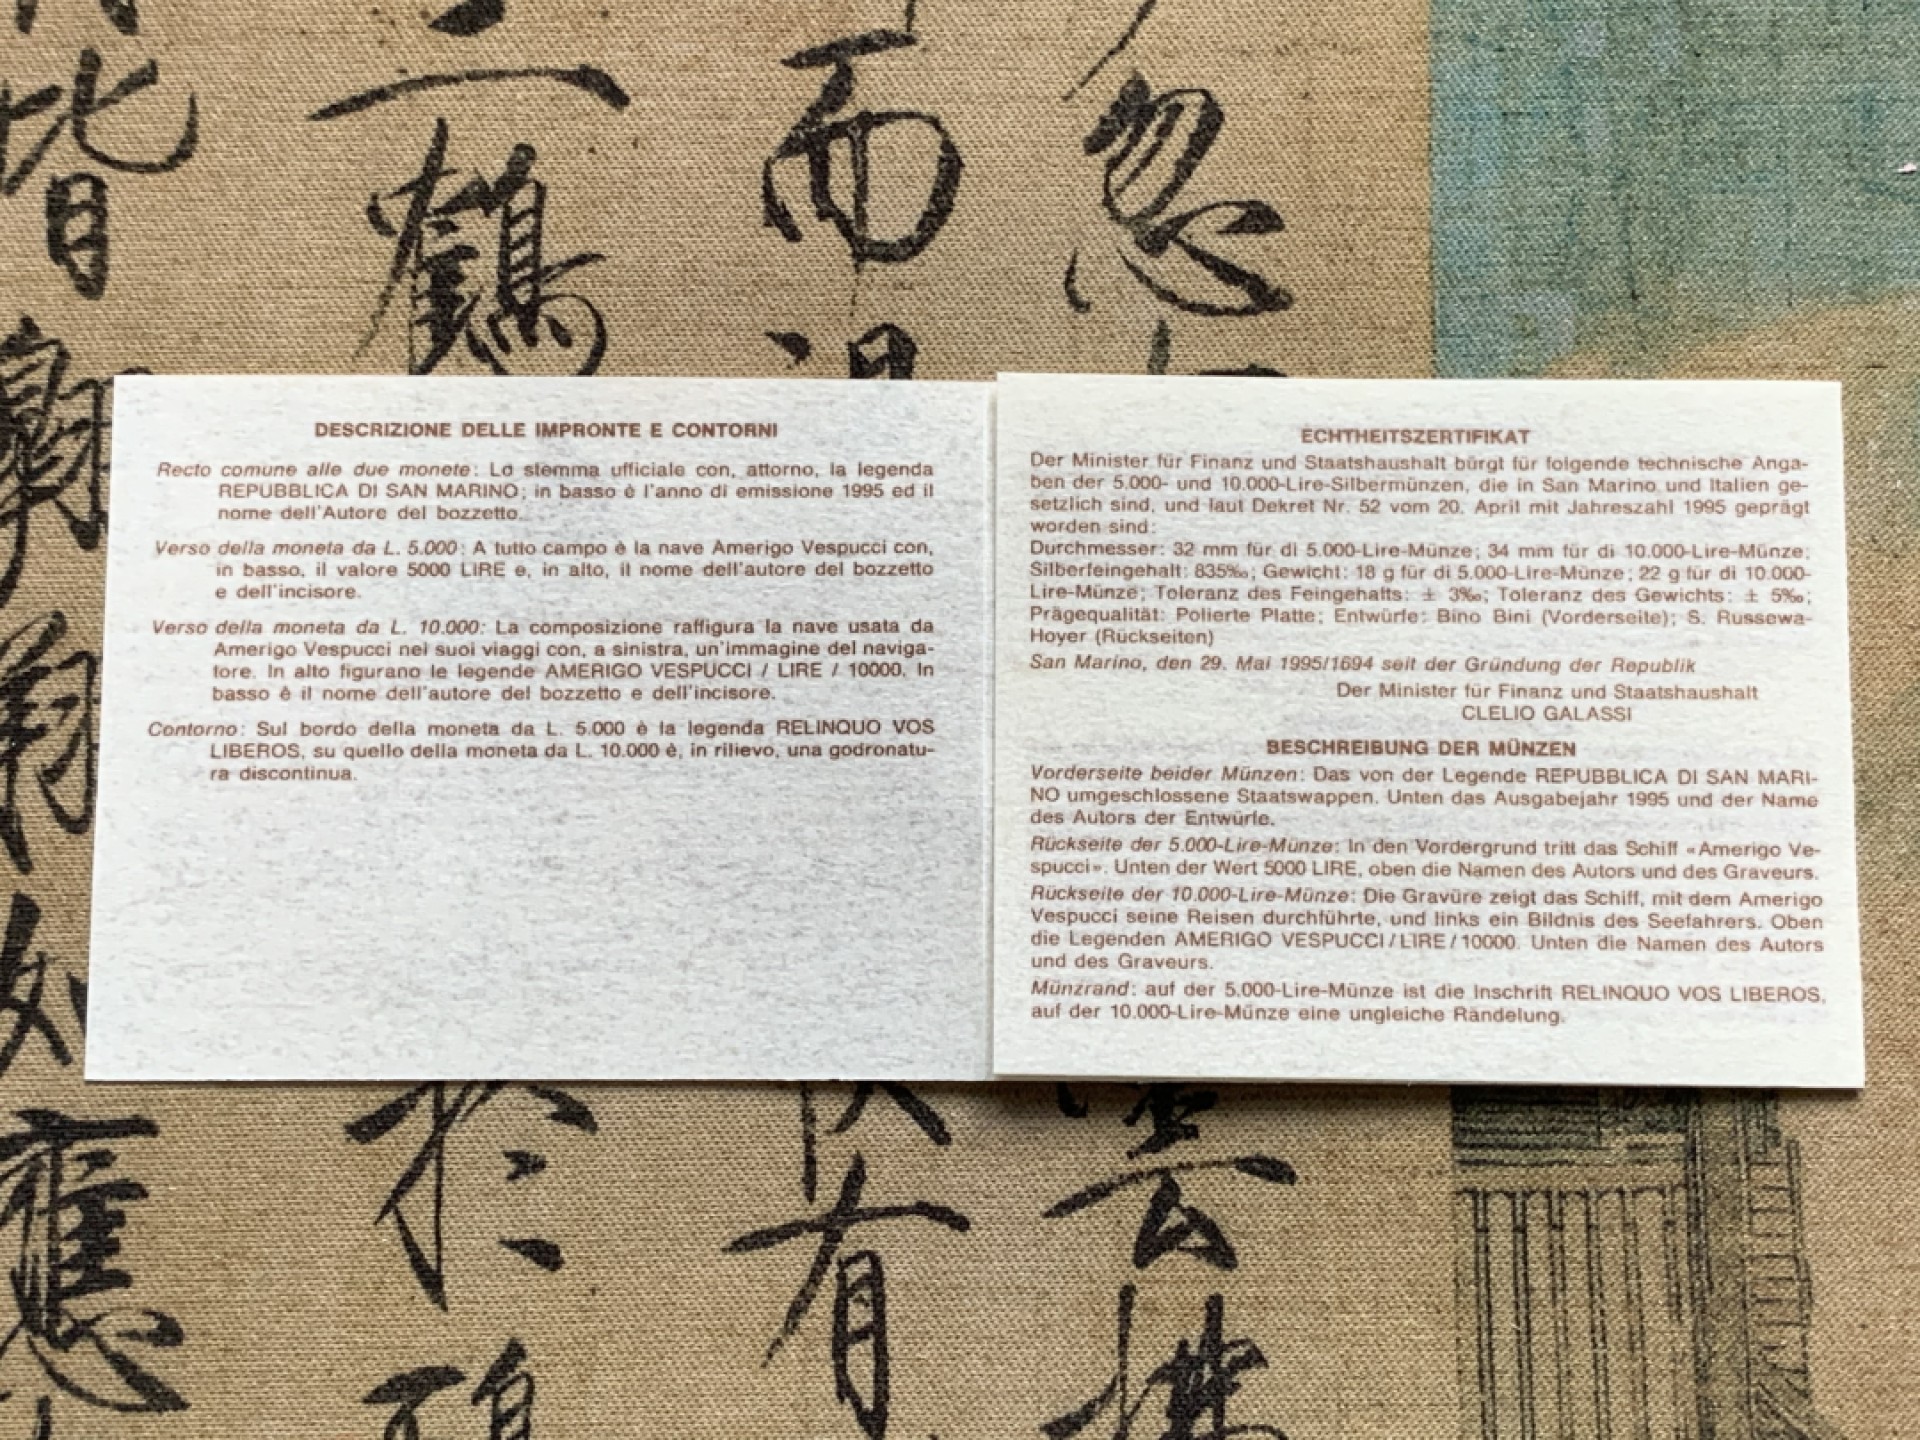 DESCRIZIONE DELLE IMPRONTE E CONTORNI
Recto comune alle due monete: Lo stemma ufficiale con, attorno, la legenda
REPUBBLICA DI SAN MARINO; in basso è l'anno di emissione 1995 ed il
nome dell'Autore del bozzetto.
Verso della moneta da L. 5.000: A tutto campo è la nave Amerigo Vespucci con,
in basso, il valore 5000 LIRE e, in alto, il nome dell'autore del bozzetto
e dell'incisore.
Verso della moneta da L. 10.000: La composizione raffigura la nave usata da
Amerigo Vespucci nei suoi viaggi con, a sinistra, un'immagine del naviga-
tore. In alto figurano le legende AMERIGO VESPUCCI / LIRE / 10000. In
basso è il nome dell'autore del bozzetto e dell'incisore.
Contorno: Sul bordo della moneta da L. 5.000 è la legenda RELINQUO VOS
LIBEROS, su quello della moneta da L. 10.000 è, in rilievo, una godronatu-
ra discontinua.
ECHTHEITSZERTIFIKAT
Der Minister für Finanz und Staatshaushalt bürgt für folgende technische Anga-
ben der 5.000- und 10.000-Lire-Silbermünzen, die in San Marino und Italien ge-
setzlich sind, und laut Dekret Nr. 52 vom 20. April mit Jahreszahl 1995 geprägt
worden sind:
Durchmesser: 32 mm für di 5.000-Lire-Münze; 34 mm für di 10.000-Lire-Münze;
Silberfeingehalt: 835‰; Gewicht: 18 g für di 5.000-Lire-Münze; 22 g für di 10.000-
Lire-Münze; Toleranz des Feingehalts: ± 3‰; Toleranz des Gewichts: ± 5‰;
Prägequalität: Polierte Platte; Entwürfe: Bino Bini (Vorderseite); S. Russewa-
Hoyer (Rückseiten)
San Marino, den 29. Mai 1995/1694 seit der Gründung der Republik
Der Minister für Finanz und Staatshaushalt
CLELIO GALASSI
BESCHREIBUNG DER MÜNZEN
Vorderseite beider Münzen: Das von der Legende REPUBBLICA DI SAN MARI-
NO umgeschlossene Staatswappen. Unten das Ausgabejahr 1995 und der Name
des Autors der Entwürfe.
Rückseite der 5.000-Lire-Münze: In den Vordergrund tritt das Schiff «Amerigo Ve-
spucci». Unten der Wert 5000 LIRE, oben die Namen des Autors und des Graveurs.
Rückseite der 10.000-Lire-Münze: Die Gravüre zeigt das Schiff, mit dem Amerigo
Vespucci seine Reisen durchführte, und links ein Bildnis des Seefahrers. Oben
die Legenden AMERIGO VESPUCCI/LIRE/10000. Unten die Namen des Autors
und des Graveurs.
Münzrand: auf der 5.000-Lire-Münze ist die Inschrift RELINQUO VOS LIBEROS,
auf der 10.000-Lire-Münze eine ungleiche Rändelung.
忽
雲
而
有
二鶴
於
皆
翱翔
應